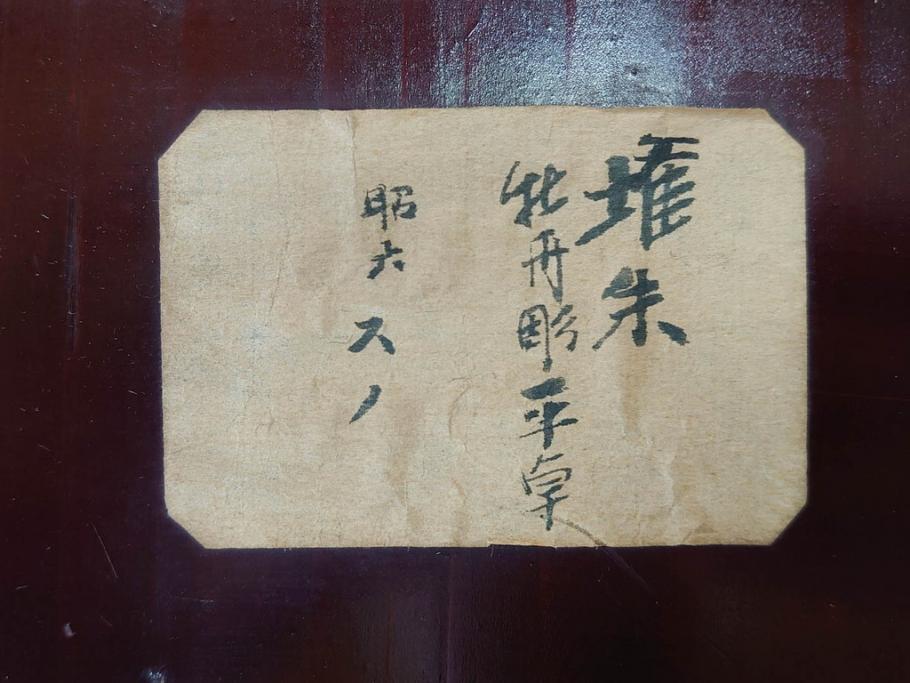 堆朱
牡丹彫平卓
昭六 スノ